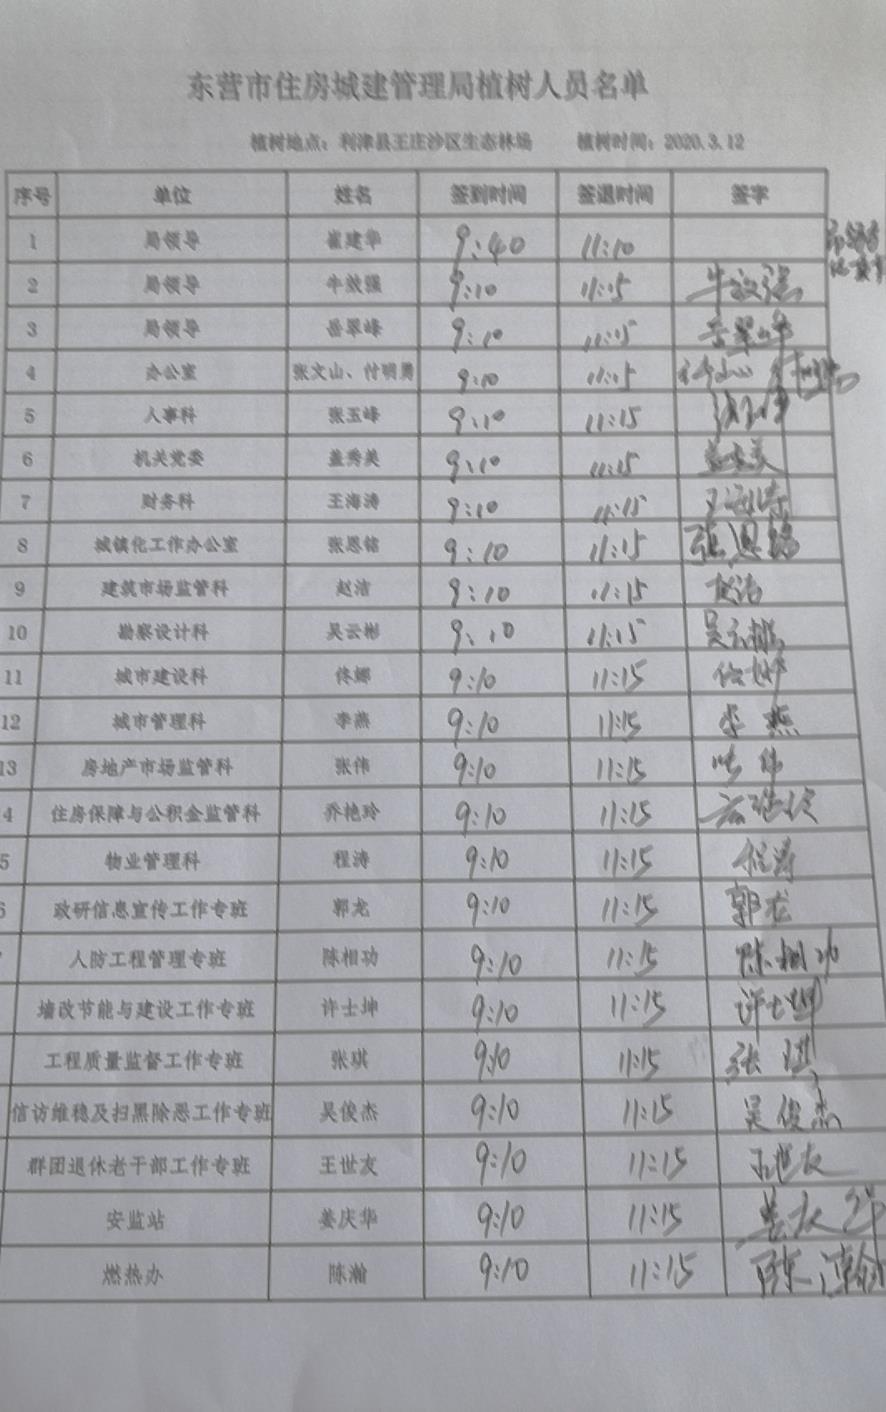 东营市住房城建管理局植树人员名单
植树地点：利津县王庄沙区生态林场 植树时间：2020.3.12
序号 单位 姓名 签到时间 签退时间 签字
1 局领导 崔建华 9:40 11:10
2 局领导 牛效强 9:10 11:15 牛效强
3 局领导 岳翠峰 9:10 11:15 岳翠峰
4 办公室 张文山、付明勇 9:10 11:15
5 人事科 张玉峰 9:10 11:15 张玉峰
6 机关党委 盖秀美 9:10 11:15 盖秀美
7 财务科 王海涛 9:10 11:15 王海涛
8 城镇化工作办公室 张恩铭 9:10 11:15 张恩铭
9 建筑市场监管科 赵洁 9:10 11:15 赵洁
10 勘察设计科 吴云彬 9:10 11:15 吴云彬
11 城市建设科 佟娜 9:10 11:15 佟娜
12 城市管理科 李燕 9:10 11:15 李燕
13 房地产市场监管科 张伟 9:10 11:15 张伟
4 住房保障与公积金监管科 乔艳玲 9:10 11:15 乔艳玲
5 物业管理科 程涛 9:10 11:15 程涛
6 政研信息宣传工作专班 郭龙 9:10 11:15 郭龙
人防工程管理专班 陈相功 9:10 11:15 陈相功
墙改节能与建设工作专班 许士坤 9:10 11:15 许士坤
工程质量监督工作专班 张琪 9:10 11:15 张琪
信访维稳及扫黑除恶工作专班 吴俊杰 9:10 11:15 吴俊杰
群团退休老干部工作专班 王世友 9:10 11:15 王世友
安监站 姜庆华 9:10 11:15 姜庆华
燃热办 陈瀚 9:10 11:15 陈瀚